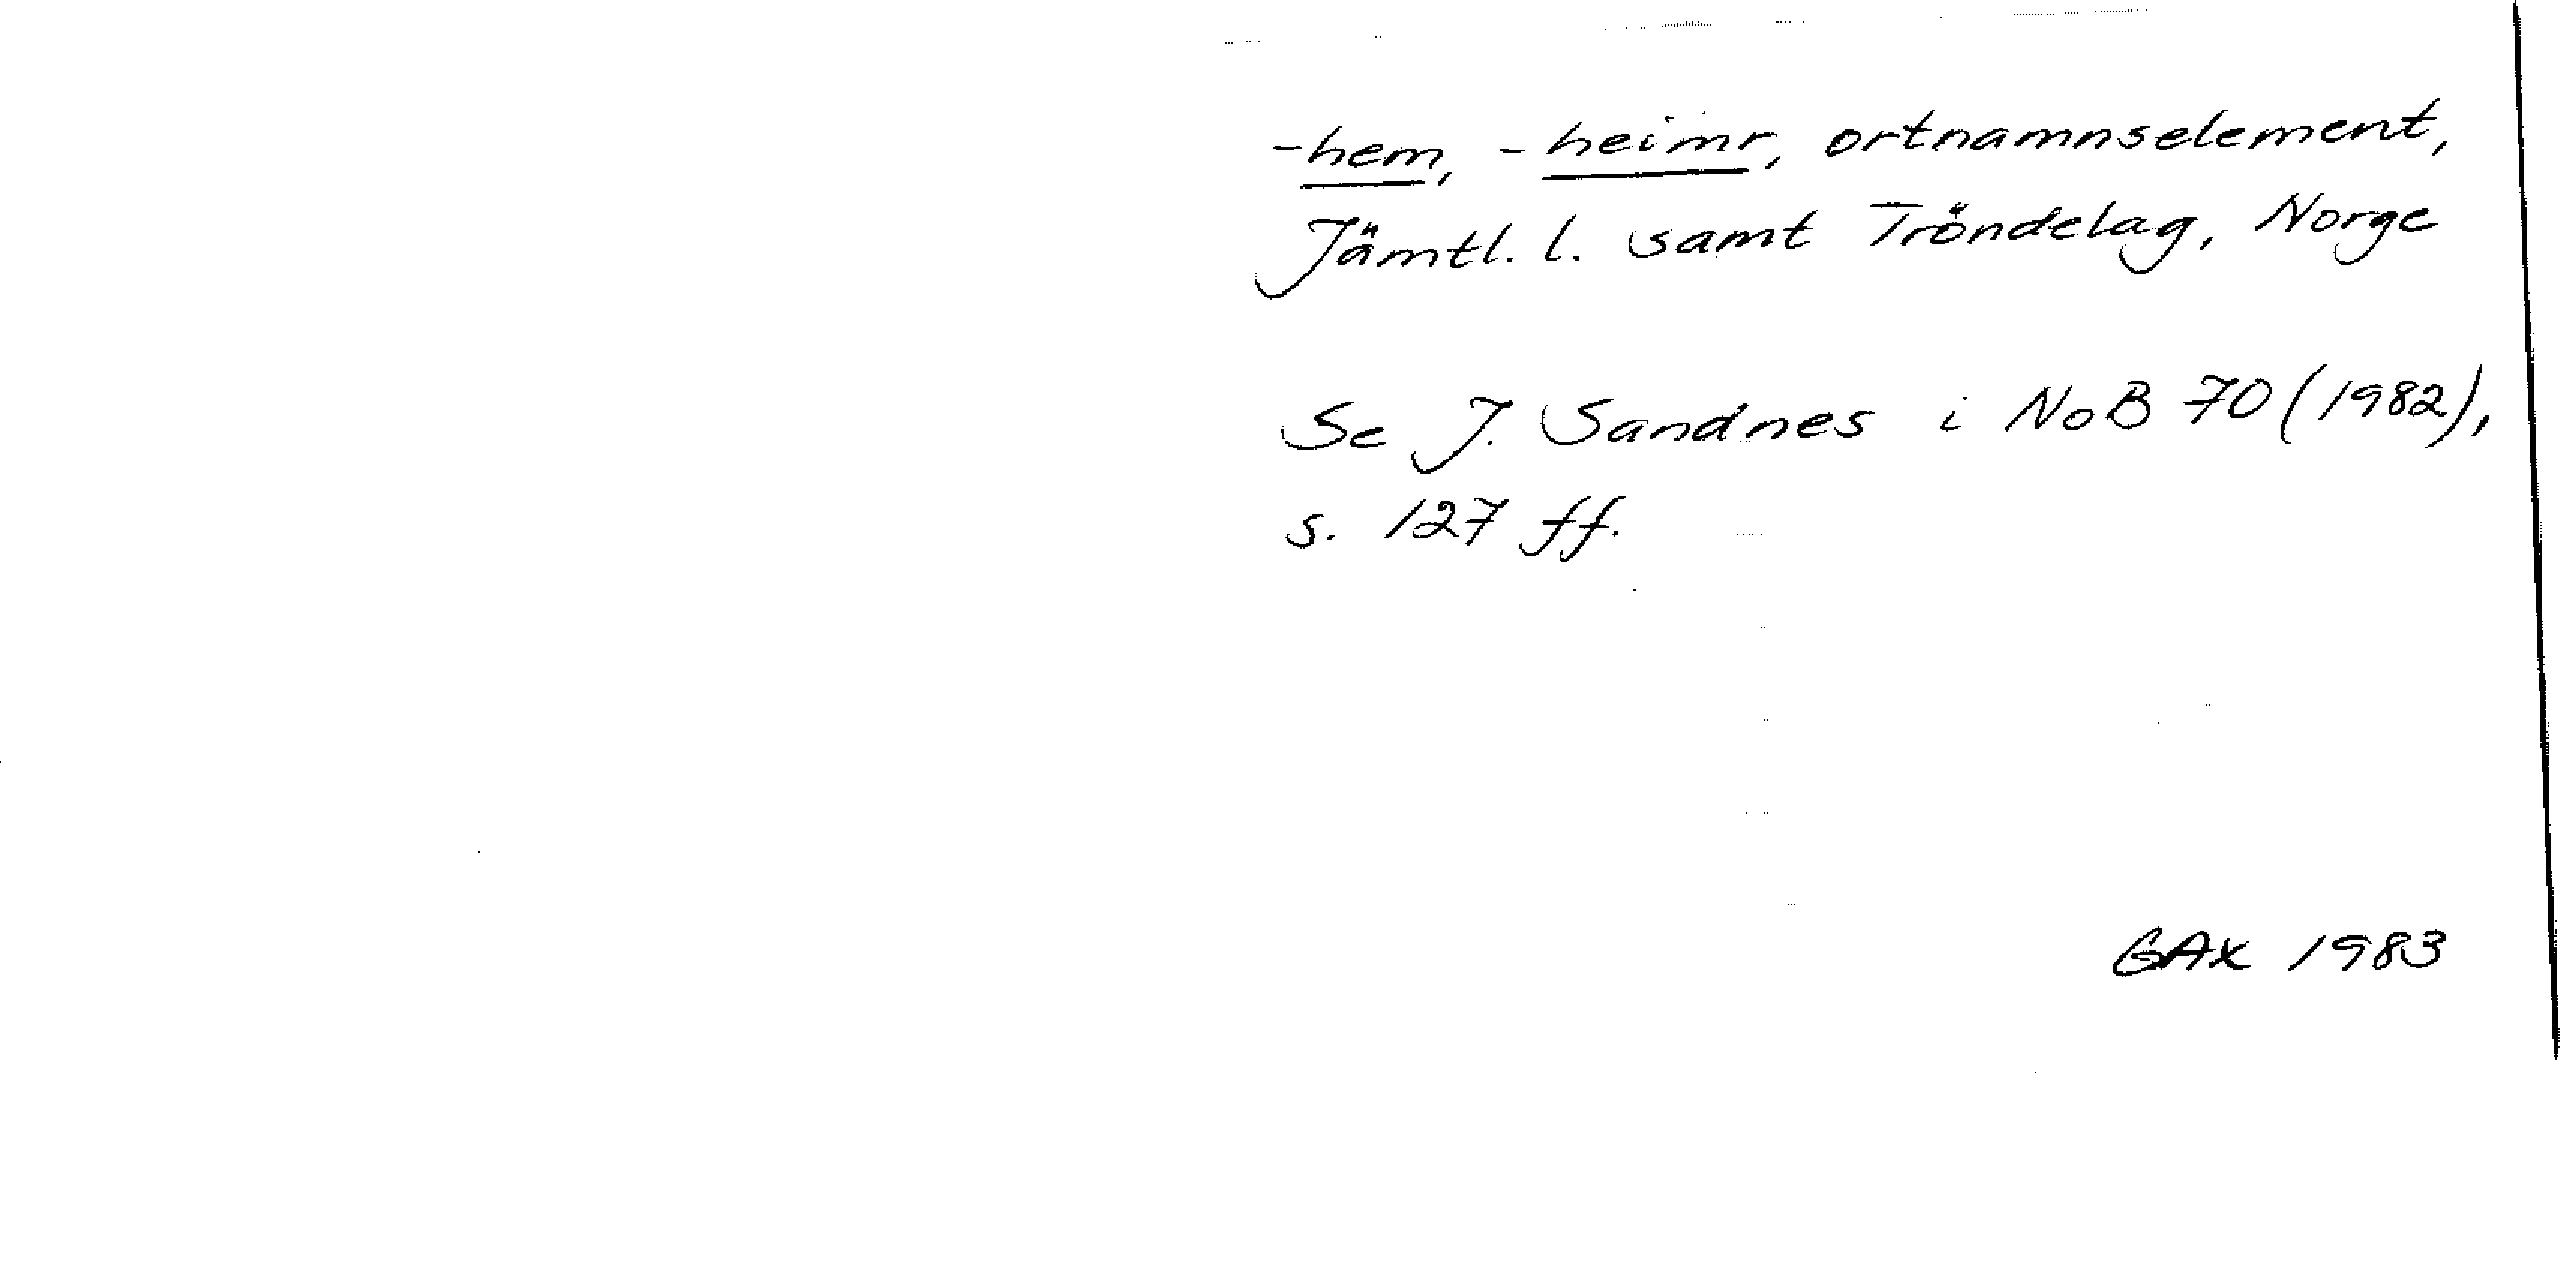 -hem, -heimr, ortnamnselement,
Jämtl. l. samt Tröndelag, Norge
Se J. Sandnes i NoB 70 (1982),
s. 127 ff.
GAX 1983